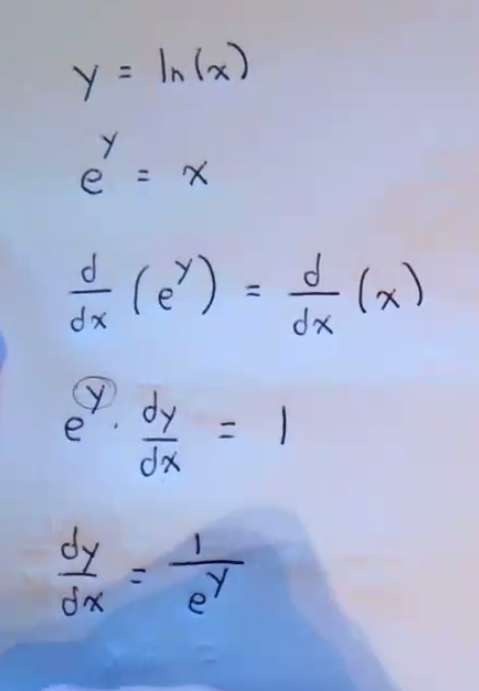 y = ln(x)
e^y = x
d/dx (e^y) = d/dx (x)
e^y · dy/dx = 1
dy/dx = 1/e^y